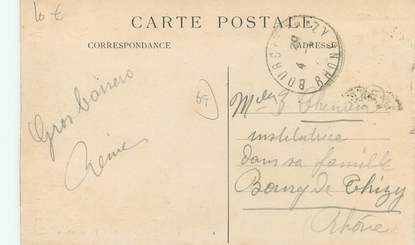 10 €
CARTE POSTALE
CORRESPONDANCE
ADRESSE
69
Gros baisers
Reine
Melle
institutrice
dans sa famille
Bourg de Thizy
Rhône